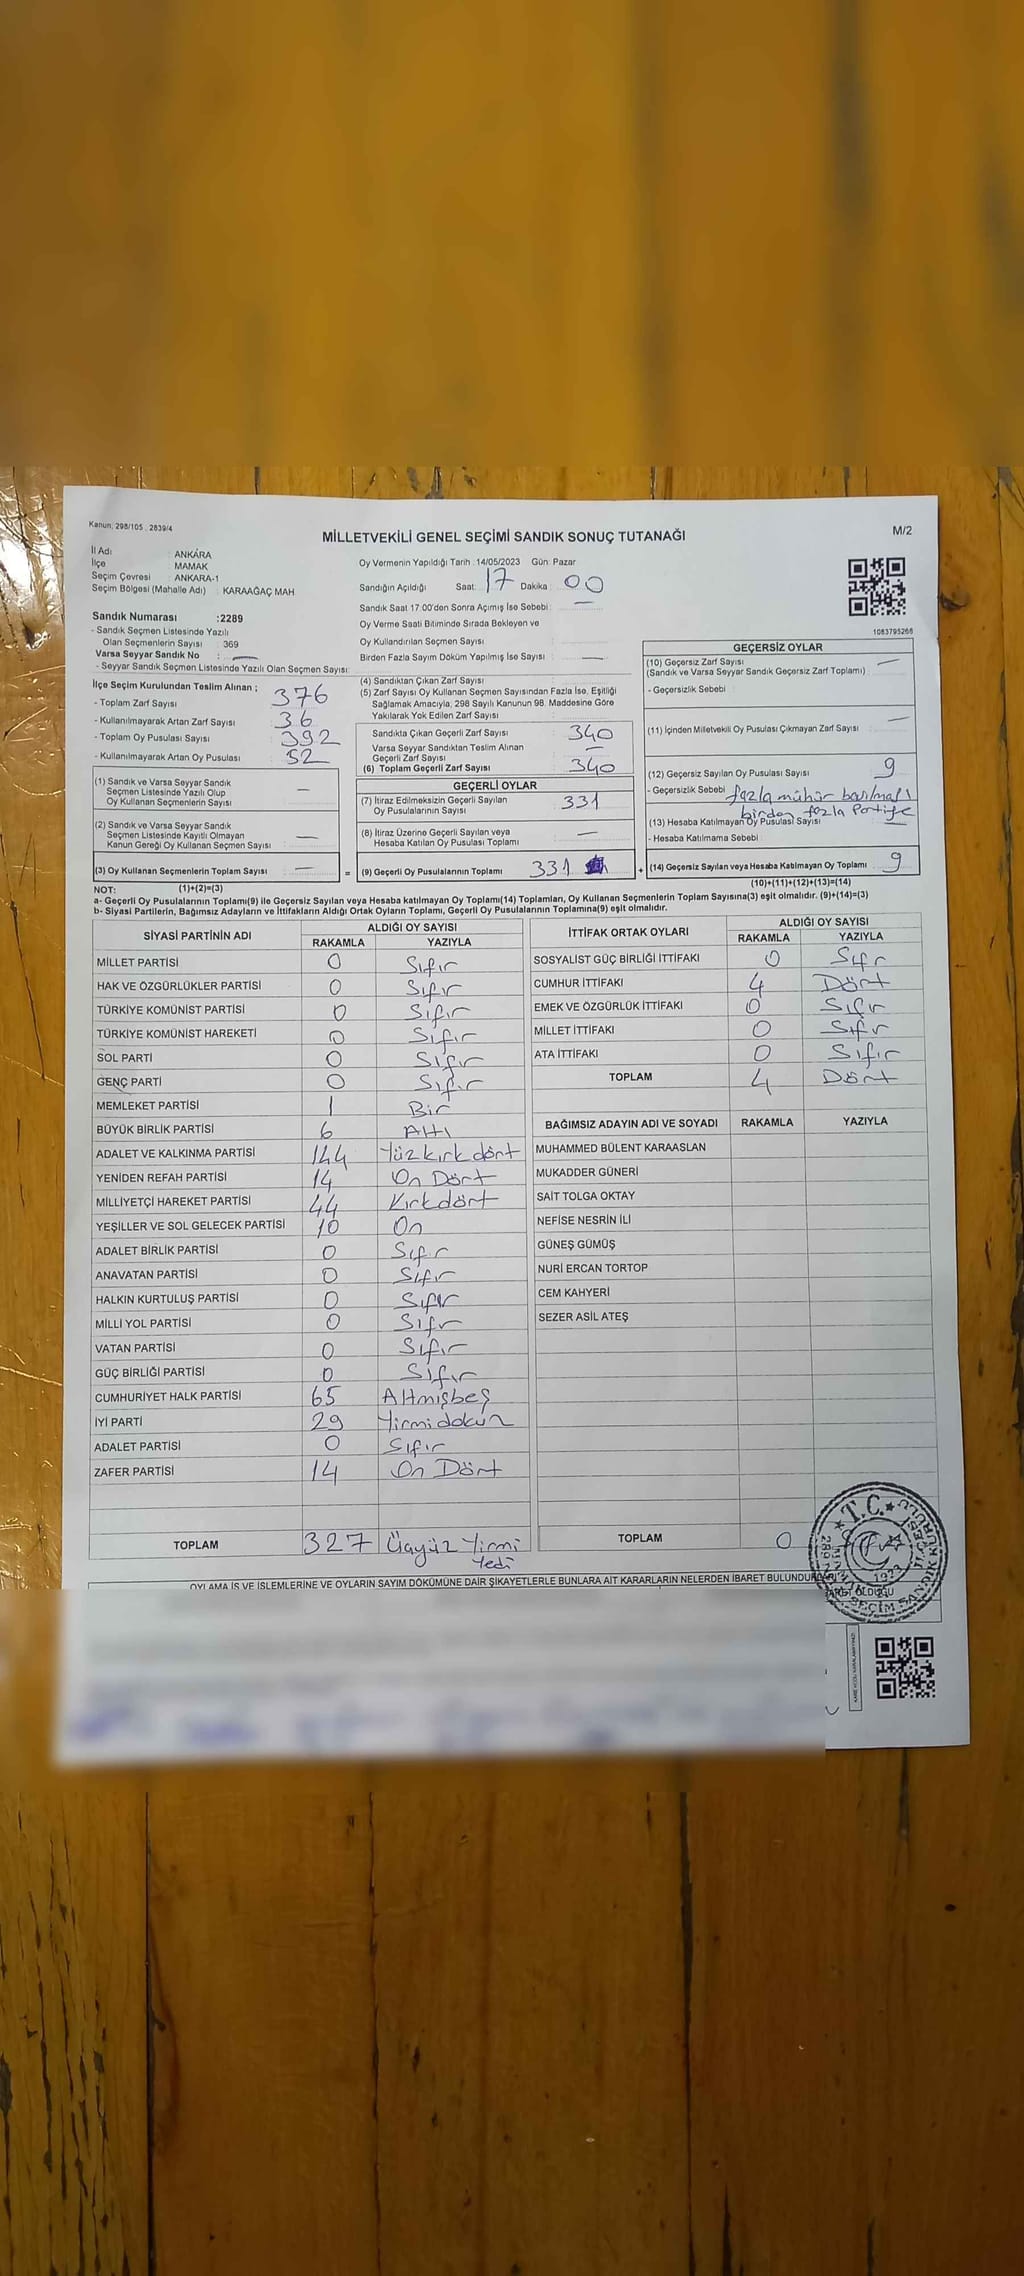 Kanun; 298/105 , 2839/4
MİLLETVEKİLİ GENEL SEÇİMİ SANDIK SONUÇ TUTANAĞI
M/2
İl Adı : ANKARA
İlçe : MAMAK
Seçim Çevresi : ANKARA-1
Seçim Bölgesi (Mahalle Adı) : KARAAĞAÇ MAH
Oy Vermenin Yapıldığı Tarih : 14/05/2023 Gün: Pazar
Sandığın Açıldığı Saat: 17 Dakika : 00
Sandık Saat 17.00'den Sonra Açımış İse Sebebi : —
Oy Verme Saati Bitiminde Sırada Bekleyen ve
Oy Kullandırılan Seçmen Sayısı :
Birden Fazla Sayım Döküm Yapılmış İse Sayısı : —
1083795266
Sandık Numarası :2289
- Sandık Seçmen Listesinde Yazılı
Olan Seçmenlerin Sayısı : 369
Varsa Seyyar Sandık No : —
- Seyyar Sandık Seçmen Listesinde Yazılı Olan Seçmen Sayısı:
İlçe Seçim Kurulundan Teslim Alınan ;
- Toplam Zarf Sayısı 376
- Kullanılmayarak Artan Zarf Sayısı 36
- Toplam Oy Pusulası Sayısı 392
- Kullanılmayarak Artan Oy Pusulası 52
(1) Sandık ve Varsa Seyyar Sandık
Seçmen Listesinde Yazılı Olup
Oy Kullanan Seçmenlerin Sayısı : —
(2) Sandık ve Varsa Seyyar Sandık
Seçmen Listesinde Kayıtlı Olmayan
Kanun Gereği Oy Kullanan Seçmen Sayısı : —
(3) Oy Kullanan Seçmenlerin Toplam Sayısı : —
(4) Sandıktan Çıkan Zarf Sayısı :
(5) Zarf Sayısı Oy Kullanan Seçmen Sayısından Fazla İse, Eşitliği
Sağlamak Amacıyla; 298 Sayılı Kanunun 98. Maddesine Göre
Yakılarak Yok Edilen Zarf Sayısı :
Sandıkta Çıkan Geçerli Zarf Sayısı : 340
Varsa Seyyar Sandıktan Teslim Alınan
Geçerli Zarf Sayısı : —
(6) Toplam Geçerli Zarf Sayısı : 340
GEÇERLİ OYLAR
(7) İtiraz Edilmeksizin Geçerli Sayılan
Oy Pusulalarının Sayısı : 331
(8) İtiraz Üzerine Geçerli Sayılan veya
Hesaba Katılan Oy Pusulası Toplamı : —
= (9) Geçerli Oy Pusulalarının Toplamı : 331
GEÇERSİZ OYLAR
(10) Geçersiz Zarf Sayısı —
(Sandık ve Varsa Seyyar Sandık Geçersiz Zarf Toplamı) :
- Geçersizlik Sebebi :
(11) İçinden Milletvekili Oy Pusulası Çıkmayan Zarf Sayısı : —
(12) Geçersiz Sayılan Oy Pusulası Sayısı : 9
- Geçersizlik Sebebi : fazla mühür basılması
birden fazla Partiye
(13) Hesaba Katılmayan Oy Pusulası Sayısı : —
- Hesaba Katılmama Sebebi :
+ (14) Geçersiz Sayılan veya Hesaba Katılmayan Oy Toplamı : 9
NOT: (1)+(2)=(3)
(10)+(11)+(12)+(13)=(14)
a- Geçerli Oy Pusulalarının Toplamı(9) ile Geçersiz Sayılan veya Hesaba katılmayan Oy Toplamı(14) Toplamları, Oy Kullanan Seçmenlerin Toplam Sayısına(3) eşit olmalıdır. (9)+(14)=(3)
b- Siyasi Partilerin, Bağımsız Adayların ve İttifakların Aldığı Ortak Oyların Toplamı, Geçerli Oy Pusulalarının Toplamına(9) eşit olmalıdır.
SİYASİ PARTİNİN ADI ALDIĞI OY SAYISI
RAKAMLA YAZIYLA
MİLLET PARTİSİ 0 Sıfır
HAK VE ÖZGÜRLÜKLER PARTİSİ 0 Sıfır
TÜRKİYE KOMÜNİST PARTİSİ 0 Sıfır
TÜRKİYE KOMÜNİST HAREKETİ 0 Sıfır
SOL PARTİ 0 Sıfır
GENÇ PARTİ 0 Sıfır
MEMLEKET PARTİSİ 1 Bir
BÜYÜK BİRLİK PARTİSİ 6 Altı
ADALET VE KALKINMA PARTİSİ 144 Yüz kırk dört
YENİDEN REFAH PARTİSİ 14 On Dört
MİLLİYETÇİ HAREKET PARTİSİ 44 Kırkdört
YEŞİLLER VE SOL GELECEK PARTİSİ 10 On
ADALET BİRLİK PARTİSİ 0 Sıfır
ANAVATAN PARTİSİ 0 Sıfır
HALKIN KURTULUŞ PARTİSİ 0 Sıfır
MİLLİ YOL PARTİSİ 0 Sıfır
VATAN PARTİSİ 0 Sıfır
GÜÇ BİRLİĞİ PARTİSİ 0 Sıfır
CUMHURİYET HALK PARTİSİ 65 Altmışbeş
İYİ PARTİ 29 Yirmidokuz
ADALET PARTİSİ 0 Sıfır
ZAFER PARTİSİ 14 On Dört
TOPLAM 327 Üçyüz Yirmi
Yedi
İTTİFAK ORTAK OYLARI ALDIĞI OY SAYISI
RAKAMLA YAZIYLA
SOSYALİST GÜÇ BİRLİĞİ İTTİFAKI 0 Sıfır
CUMHUR İTTİFAKI 4 Dört
EMEK VE ÖZGÜRLÜK İTTİFAKI 0 Sıfır
MİLLET İTTİFAKI 0 Sıfır
ATA İTTİFAKI 0 Sıfır
TOPLAM 4 Dört
BAĞIMSIZ ADAYIN ADI VE SOYADI RAKAMLA YAZIYLA
MUHAMMED BÜLENT KARAASLAN
MUKADDER GÜNERİ
SAİT TOLGA OKTAY
NEFİSE NESRİN İLİ
GÜNEŞ GÜMÜŞ
NURİ ERCAN TORTOP
CEM KAHYERİ
SEZER ASİL ATEŞ
TOPLAM 0
T.C.
OYLAMA İŞ VE İŞLEMLERİNE VE OYLARIN SAYIM DÖKÜMÜNE DAİR ŞİKAYETLERLE BUNLARA AİT KARARLARIN NELERDEN İBARET BULUNDUĞU